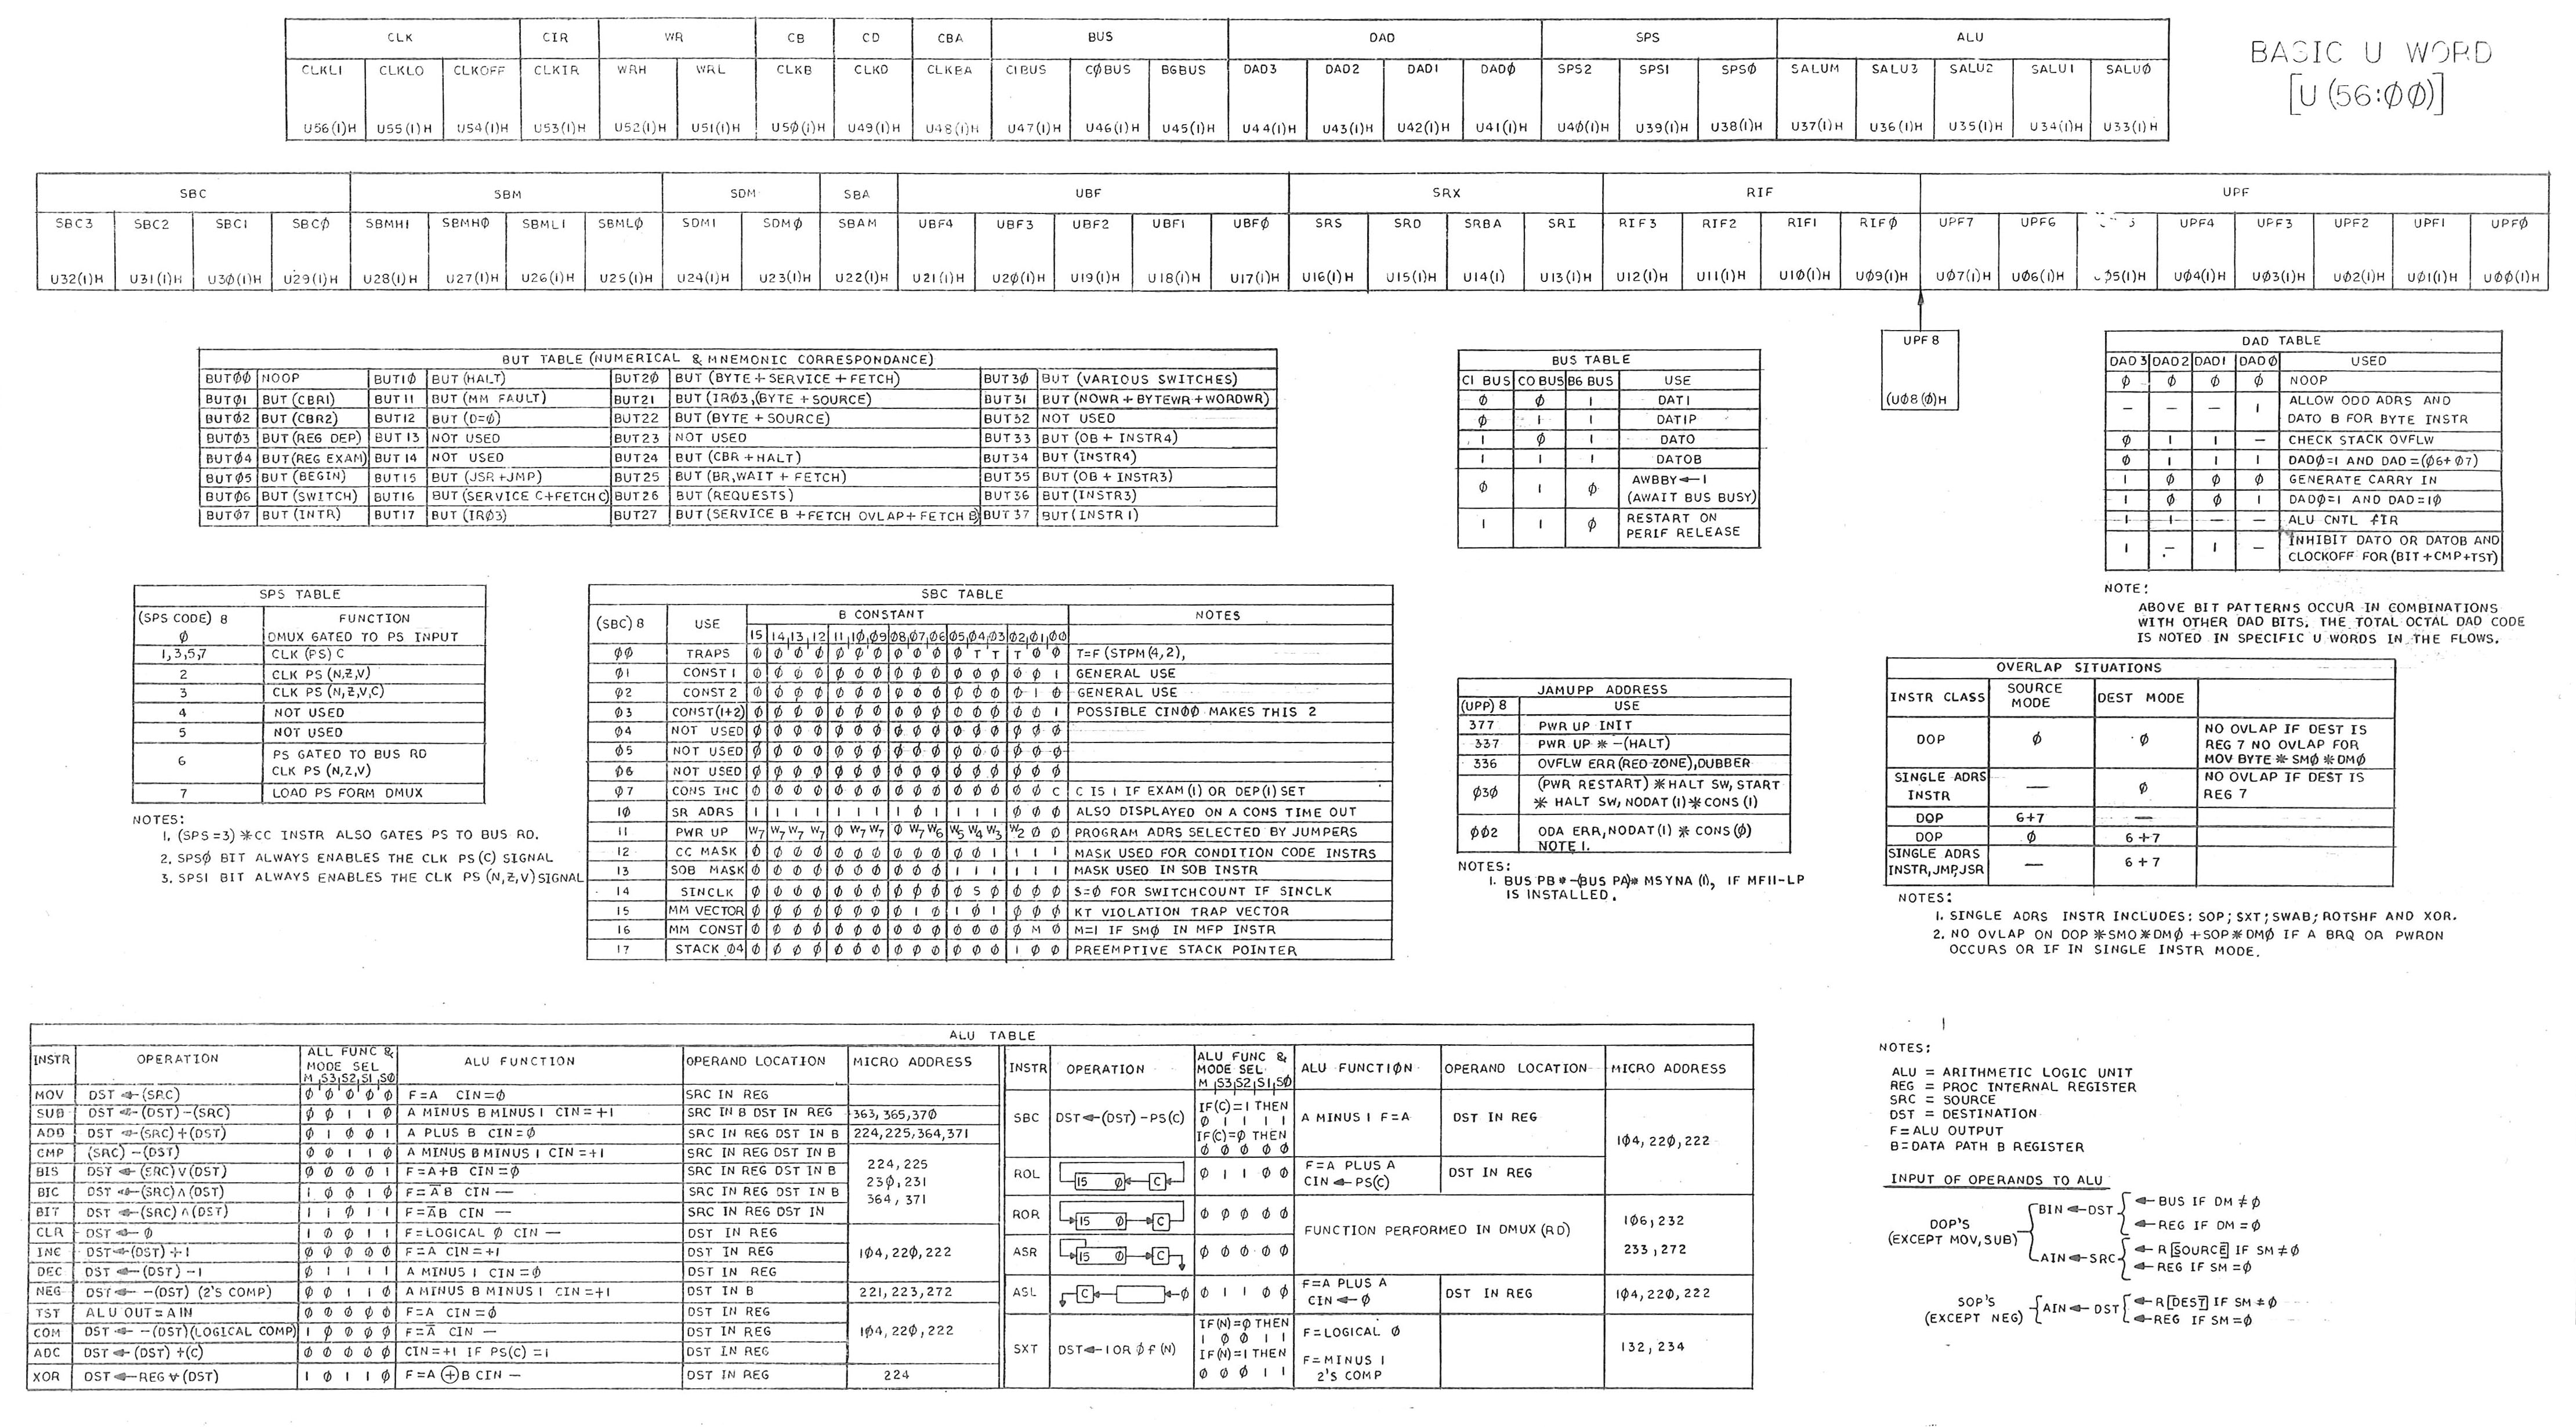 BASIC U WORD
[U (56:ØØ)]
CLK CIR WR CB CD CBA BUS DAD SPS ALU
CLKL1 CLKLO CLKOFF CLKIR WRH WRL CLKB CLKD CLKBA C1BUS CØBUS BGBUS DAD3 DAD2 DAD1 DADØ SPS2 SPS1 SPSØ SALUM SALU3 SALU2 SALU1 SALUØ
U56(1)H U55(1)H U54(1)H U53(1)H U52(1)H U51(1)H U5Ø(1)H U49(1)H U48(1)H U47(1)H U46(1)H U45(1)H U44(1)H U43(1)H U42(1)H U41(1)H U4Ø(1)H U39(1)H U38(1)H U37(1)H U36(1)H U35(1)H U34(1)H U33(1)H
SBC SBM SDM SBA UBF SRX RIF UPF
SBC3 SBC2 SBC1 SBCØ SBMH1 SBMHØ SBML1 SBMLØ SDM1 SDMØ SBAM UBF4 UBF3 UBF2 UBF1 UBFØ SRS SRD SRBA SRI RIF3 RIF2 RIF1 RIFØ UPF7 UPF6 UPF4 UPF3 UPF2 UPF1 UPFØ
U32(1)H U31(1)H U3Ø(1)H U29(1)H U28(1)H U27(1)H U26(1)H U25(1)H U24(1)H U23(1)H U22(1)H U21(1)H U2Ø(1)H U19(1)H U18(1)H U17(1)H U16(1)H U15(1)H U14(1) U13(1)H U12(1)H U11(1)H U1Ø(1)H UØ9(1)H UØ7(1)H UØ6(1)H Ø5(1)H UØ4(1)H UØ3(1)H UØ2(1)H UØ1(1)H UØØ(1)H
UPF8
(UØ8(Ø)H
BUT TABLE (NUMERICAL & MNEMONIC CORRESPONDANCE)
BUTØØ NOOP BUT1Ø BUT (HALT) BUT2Ø BUT (BYTE + SERVICE + FETCH) BUT3Ø BUT (VARIOUS SWITCHES)
BUTØ1 BUT (CBR1) BUT11 BUT (MM FAULT) BUT21 BUT (IRØ3,(BYTE + SOURCE) BUT31 BUT (NOWR + BYTEWR + WORDWR)
BUTØ2 BUT (CBR2) BUT12 BUT (D=Ø) BUT22 BUT (BYTE + SOURCE) BUT32 NOT USED
BUTØ3 BUT (REG DEP) BUT13 NOT USED BUT23 NOT USED BUT33 BUT (OB + INSTR4)
BUTØ4 BUT (REG EXAM) BUT14 NOT USED BUT24 BUT (CBR + HALT) BUT34 BUT (INSTR4)
BUTØ5 BUT (BEGIN) BUT15 BUT (JSR + JMP) BUT25 BUT (BR,WAIT + FETCH) BUT35 BUT (OB + INSTR3)
BUTØ6 BUT (SWITCH) BUT16 BUT (SERVICE C+FETCH C) BUT26 BUT (REQUESTS) BUT36 BUT (INSTR3)
BUTØ7 BUT (INTR) BUT17 BUT (IRØ3) BUT27 BUT (SERVICE B + FETCH OVLAP + FETCH B) BUT37 BUT (INSTR1)
BUS TABLE
C1 BUS CO BUS BG BUS USE
Ø Ø 1 DATI
Ø 1 1 DATIP
1 Ø 1 DATO
1 1 1 DATOB
Ø 1 Ø AWBBY ← 1
(AWAIT BUS BUSY)
1 1 Ø RESTART ON
PERIF RELEASE
DAD TABLE
DAD 3 DAD2 DAD1 DAD Ø USED
Ø Ø Ø Ø NOOP
— — — 1 ALLOW ODD ADRS AND
DATO B FOR BYTE INSTR
Ø 1 1 — CHECK STACK OVFLW
Ø 1 1 1 DADØ=1 AND DAD=(Ø6+Ø7)
1 Ø Ø Ø GENERATE CARRY IN
1 Ø Ø 1 DADØ=1 AND DAD=1Ø
1 1 — — ALU CNTL fIR
1 — 1 — INHIBIT DATO OR DATOB AND
CLOCKOFF FOR (BIT+CMP+TST)
NOTE:
ABOVE BIT PATTERNS OCCUR IN COMBINATIONS
WITH OTHER DAD BITS. THE TOTAL OCTAL DAD CODE
IS NOTED IN SPECIFIC U WORDS IN THE FLOWS.
SPS TABLE
(SPS CODE) 8 FUNCTION
Ø DMUX GATED TO PS INPUT
1,3,5,7 CLK (PS) C
2 CLK PS (N,Z,V)
3 CLK PS (N,Z,V,C)
4 NOT USED
5 NOT USED
6 PS GATED TO BUS RD
CLK PS (N,Z,V)
7 LOAD PS FORM DMUX
NOTES:
1. (SPS=3) * CC INSTR ALSO GATES PS TO BUS RD.
2. SPSØ BIT ALWAYS ENABLES THE CLK PS (C) SIGNAL
3. SPS1 BIT ALWAYS ENABLES THE CLK PS (N,Z,V) SIGNAL
SBC TABLE
(SBC) 8 USE B CONSTANT NOTES
15 14,13,12 11,1Ø,Ø9 Ø8,Ø7,Ø6 Ø5,Ø4,Ø3 Ø2,Ø1,ØØ
ØØ TRAPS Ø Ø Ø Ø Ø Ø Ø Ø Ø Ø Ø T T T Ø Ø T=F (STPM (4,2),
Ø1 CONST 1 Ø Ø Ø Ø Ø Ø Ø Ø Ø Ø Ø Ø Ø Ø Ø 1 GENERAL USE
Ø2 CONST 2 Ø Ø Ø Ø Ø Ø Ø Ø Ø Ø Ø Ø Ø Ø 1 Ø GENERAL USE
Ø3 CONST (1+2) Ø Ø Ø Ø Ø Ø Ø Ø Ø Ø Ø Ø Ø Ø Ø 1 POSSIBLE CINØØ MAKES THIS 2
Ø4 NOT USED Ø Ø Ø Ø Ø Ø Ø Ø Ø Ø Ø Ø Ø Ø Ø Ø
Ø5 NOT USED Ø Ø Ø Ø Ø Ø Ø Ø Ø Ø Ø Ø Ø Ø Ø Ø
Ø6 NOT USED Ø Ø Ø Ø Ø Ø Ø Ø Ø Ø Ø Ø Ø Ø Ø Ø
Ø7 CONS INC Ø Ø Ø Ø Ø Ø Ø Ø Ø Ø Ø Ø Ø Ø Ø C C IS 1 IF EXAM (1) OR DEP (1) SET
1Ø SR ADRS 1 1 1 1 1 1 1 1 Ø 1 1 1 1 Ø Ø Ø ALSO DISPLAYED ON A CONS TIME OUT
11 PWR UP W7 W7 W7 W7 Ø W7 W7 Ø W7 W6 W5 W4 W3 W2 Ø Ø PROGRAM ADRS SELECTED BY JUMPERS
12 CC MASK Ø Ø Ø Ø Ø Ø Ø Ø Ø Ø Ø Ø 1 1 1 1 MASK USED FOR CONDITION CODE INSTRS
13 SOB MASK Ø Ø Ø Ø Ø Ø Ø Ø Ø Ø 1 1 1 1 1 1 MASK USED IN SOB INSTR
14 SINCLK Ø Ø Ø Ø Ø Ø Ø Ø Ø Ø Ø S Ø Ø Ø Ø S=Ø FOR SWITCHCOUNT IF SINCLK
15 MM VECTOR Ø Ø Ø Ø Ø Ø Ø Ø 1 Ø 1 Ø 1 Ø Ø Ø KT VIOLATION TRAP VECTOR
16 MM CONST Ø Ø Ø Ø Ø Ø Ø Ø Ø Ø Ø Ø Ø Ø M Ø M=1 IF SMØ IN MFP INSTR
17 STACK Ø4 Ø Ø Ø Ø Ø Ø Ø Ø Ø Ø Ø Ø Ø 1 Ø Ø PREEMPTIVE STACK POINTER
JAMUPP ADDRESS
(UPP) 8 USE
377 PWR UP INIT
337 PWR UP * -(HALT)
336 OVFLW ERR (RED ZONE), DUBBER
Ø3Ø (PWR RESTART) * HALT SW, START
* HALT SW, NODAT (1) * CONS (1)
ØØ2 ODA ERR, NODAT (1) * CONS (Ø)
NOTE 1.
NOTES:
1. BUS PB * -(BUS PA) * MSYNA (1), IF MF11-LP
IS INSTALLED.
OVERLAP SITUATIONS
INSTR CLASS SOURCE MODE DEST MODE
DOP Ø Ø NO OVLAP IF DEST IS
REG 7 NO OVLAP FOR
MOV BYTE * SMØ * DMØ
SINGLE ADRS INSTR — Ø NO OVLAP IF DEST IS
REG 7
DOP 6+7 —
DOP Ø 6+7
SINGLE ADRS INSTR, JMP, JSR — 6+7
NOTES:
1. SINGLE ADRS INSTR INCLUDES: SOP; SXT; SWAB; ROTSHF AND XOR.
2. NO OVLAP ON DOP * SMO * DMØ + SOP * DMØ IF A BRQ OR PWRDN
OCCURS OR IF IN SINGLE INSTR MODE.
ALU TABLE
INSTR OPERATION ALL FUNC & MODE SEL M S3 S2 S1 SØ ALU FUNCTION OPERAND LOCATION MICRO ADDRESS
MOV DST ← (SRC) Ø Ø Ø Ø Ø F=A CIN=Ø SRC IN REG
SUB DST ← (DST) - (SRC) Ø Ø 1 1 Ø A MINUS B MINUS 1 CIN=+1 SRC IN B DST IN REG 363, 365, 37Ø
ADD DST ← (SRC) + (DST) Ø 1 Ø Ø 1 A PLUS B CIN=Ø SRC IN REG DST IN B 224, 225, 364, 371
CMP (SRC) - (DST) Ø Ø 1 1 Ø A MINUS B MINUS 1 CIN=+1 SRC IN REG DST IN B
BIS DST ← (SRC) V (DST) Ø Ø Ø Ø 1 F=A+B CIN=Ø SRC IN REG DST IN B 224, 225
23Ø, 231
BIC DST ← (SRC) ∧ (DST) 1 Ø Ø 1 Ø F=A̅ B CIN — SRC IN REG DST IN B 364, 371
BIT DST ← (SRC) ∧ (DST) 1 1 Ø 1 1 F=A̅B CIN — SRC IN REG DST IN
CLR DST ← Ø 1 Ø Ø 1 1 F=LOGICAL Ø CIN — DST IN REG
INC DST ← (DST) + 1 Ø Ø Ø Ø Ø F=A CIN=+1 DST IN REG 1Ø4, 22Ø, 222
DEC DST ← (DST) - 1 Ø 1 1 1 1 A MINUS 1 CIN=Ø DST IN REG
NEG DST ← -(DST) (2'S COMP) Ø Ø 1 1 Ø A MINUS B MINUS 1 CIN=+1 DST IN B 221, 223, 272
TST ALU OUT = AIN Ø Ø Ø Ø Ø F=A CIN=Ø DST IN REG
COM DST ← -(DST) (LOGICAL COMP) 1 Ø Ø Ø Ø F=A̅ CIN — DST IN REG 1Ø4, 22Ø, 222
ADC DST ← (DST) + (C) Ø Ø Ø Ø Ø CIN=+1 IF PS(C)=1 DST IN REG
XOR DST ← REG ⊻ (DST) 1 Ø 1 1 Ø F=A ⊕ B CIN — DST IN REG 224
INSTR OPERATION ALU FUNC & MODE SEL M S3 S2 S1 SØ ALU FUNCTIØN OPERAND LOCATION MICRO ADDRESS
SBC DST ← (DST) - PS(C) IF(C)=1 THEN
Ø 1 1 1 1
IF(C)=Ø THEN
Ø Ø Ø Ø Ø A MINUS 1 F=A DST IN REG 1Ø4, 22Ø, 222
ROL 15 Ø C Ø 1 1 Ø Ø F=A PLUS A
CIN ← PS(C) DST IN REG
ROR 15 Ø C Ø Ø Ø Ø Ø FUNCTION PERFORMED IN DMUX (RD) 1Ø6, 232
ASR 15 Ø C Ø Ø Ø Ø Ø 233, 272
ASL C Ø Ø 1 1 Ø Ø F=A PLUS A
CIN ← Ø DST IN REG 1Ø4, 22Ø, 222
SXT DST ← 1 OR Ø f (N) IF(N)=Ø THEN
1 Ø Ø 1 1
IF(N)=1 THEN
Ø Ø Ø 1 1 F=LOGICAL Ø
F=MINUS 1
2'S COMP 132, 234
NOTES:
ALU = ARITHMETIC LOGIC UNIT
REG = PROC INTERNAL REGISTER
SRC = SOURCE
DST = DESTINATION
F=ALU OUTPUT
B=DATA PATH B REGISTER
INPUT OF OPERANDS TO ALU
DOP'S
(EXCEPT MOV, SUB)
BIN ← DST
← BUS IF DM ≠ Ø
← REG IF DM = Ø
AIN ← SRC
← R [SOURCE] IF SM ≠ Ø
← REG IF SM = Ø
SOP'S
(EXCEPT NEG)
AIN ← DST
← R [DEST] IF SM ≠ Ø
← REG IF SM = Ø